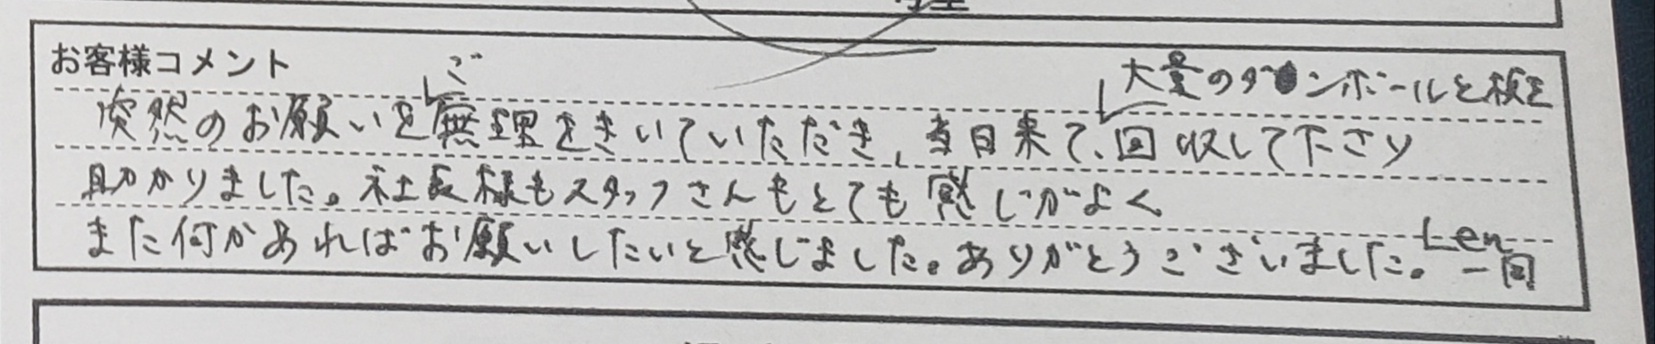 お客様コメント
ご
大量のダンボールと板を
突然のお願いを無理をきいていただき、当日来て、回収して下さり
助かりました。社長様もスタッフさんもとても感じがよく
また何かあればお願いしたいと感じました。ありがとうございました。
Len
一同